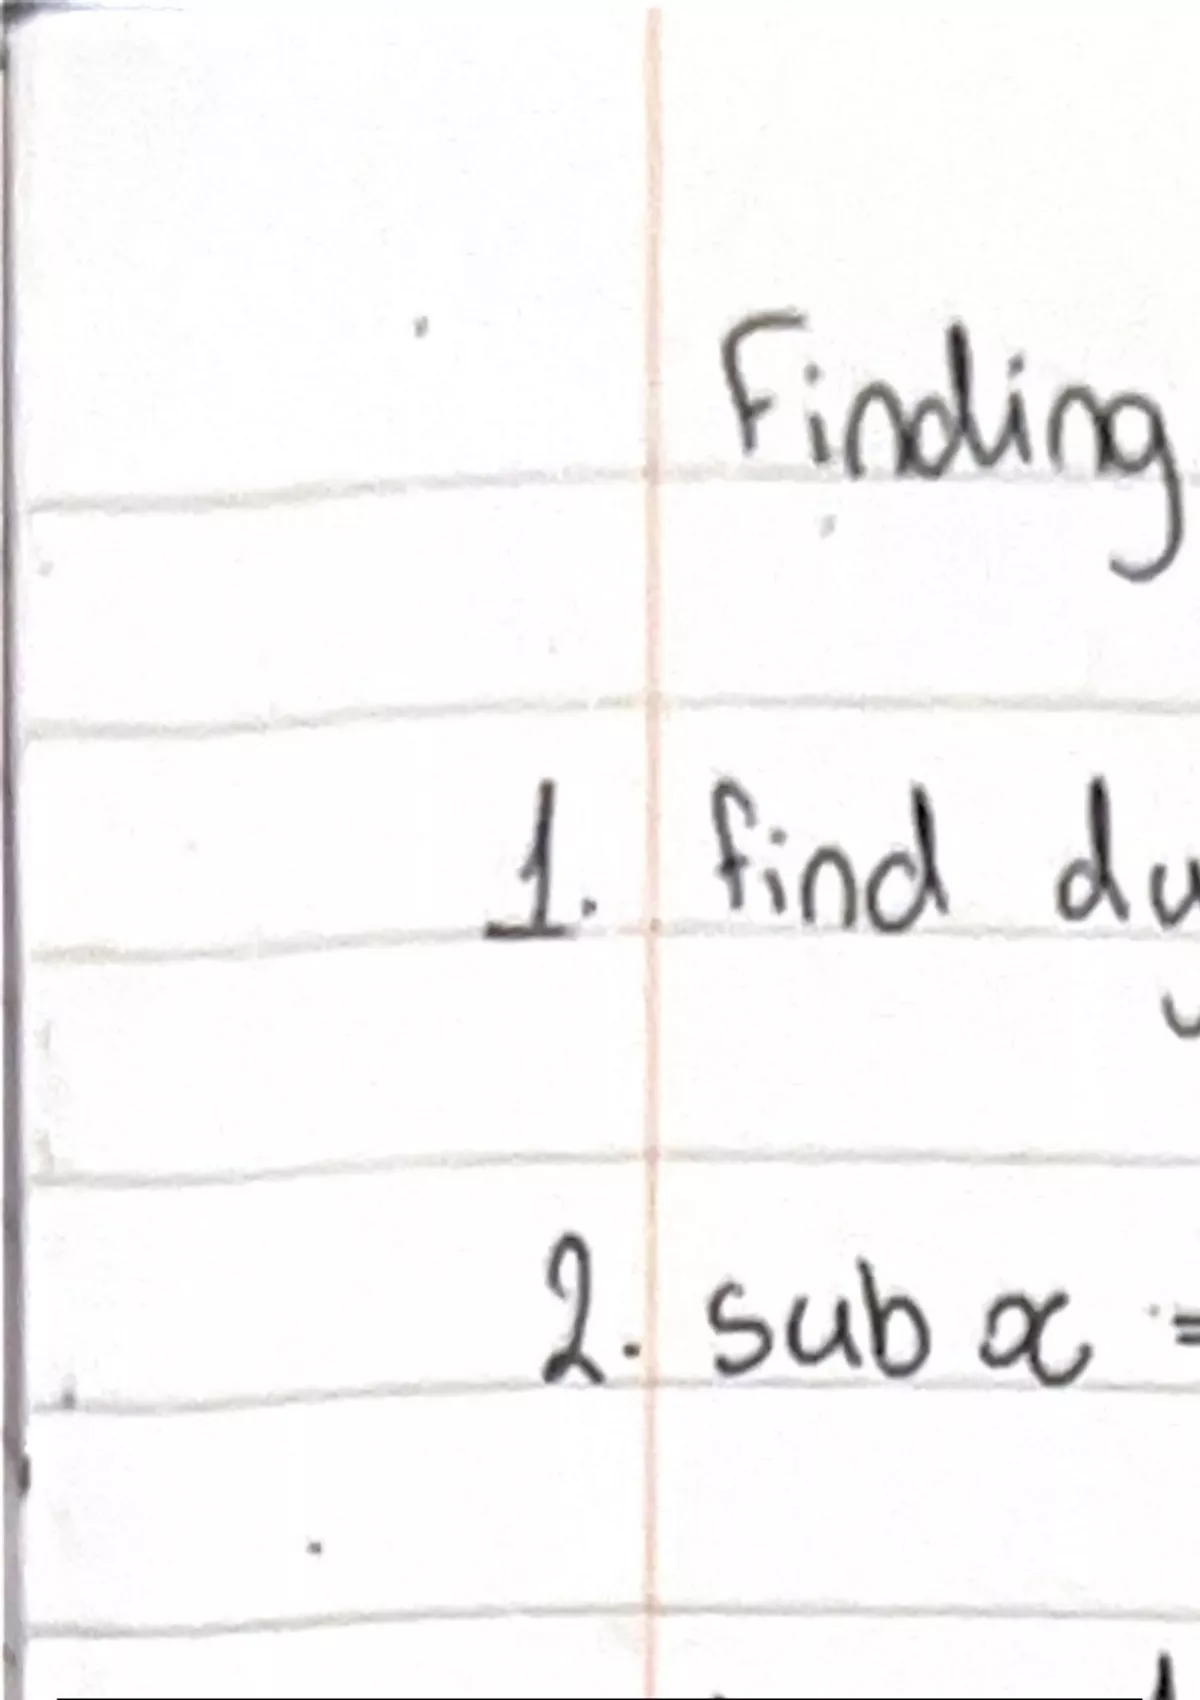 Finding
1. find dy
2. sub x =